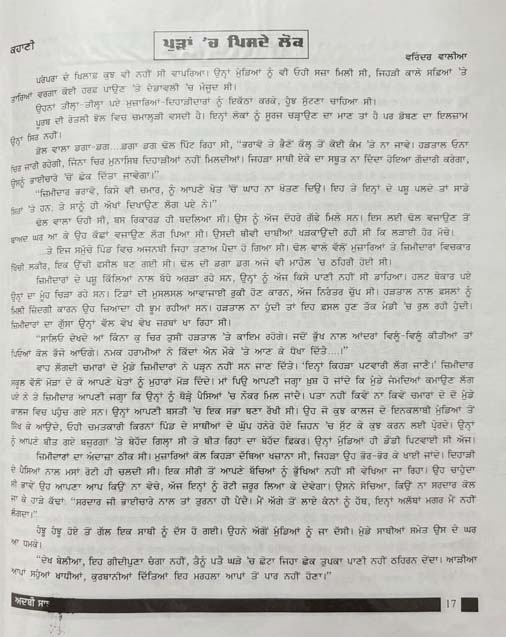 ਕਹਾਣੀ
ਪੁੜਾਂ 'ਚ ਪਿਸਦੇ ਲੋਕ
ਵਰਿੰਦਰ ਵਾਲੀਆ
ਪਰੰਪਰਾ ਦੇ ਖਿਲਾਫ਼ ਕੁਝ ਵੀ ਨਹੀਂ ਸੀ ਵਾਪਰਿਆ। ਉਨ੍ਹਾਂ ਮੁੰਡਿਆਂ ਨੂੰ ਵੀ ਓਹੀ ਸਜ਼ਾ ਮਿਲੀ ਸੀ, ਜਿਹੜੀ ਕਾਲੇ ਸਫ਼ਿਆਂ 'ਤੇ
ਤਾਰਿਆਂ ਵਰਗਾ ਕੋਈ ਹਰਫ਼ ਪਾਉਣ 'ਤੇ ਦੰਡਾਵਲੀ 'ਚ ਮੌਜੂਦ ਸੀ।
ਉਹਨਾਂ ਤੀਲ੍ਹਾ-ਤੀਲ੍ਹਾ ਪਏ ਮੁਜ਼ਾਰਿਆਂ-ਦਿਹਾੜੀਦਾਰਾਂ ਨੂੰ ਇਕੱਠਾ ਕਰਕੇ, ਹੂੰਝ ਸੁੱਟਣਾ ਚਾਹਿਆ ਸੀ।
ਪੂਰਬ ਦੀ ਰੇਤਲੀ ਝੋਲ ਵਿਚ ਚਮਾਰ੍ਹਲੀ ਵਸਦੀ ਹੈ। ਇਨ੍ਹਾਂ ਲੋਕਾਂ ਨੂੰ ਸੂਰਜ ਚੜ੍ਹਾਉਣ ਦਾ ਮਾਣ ਤਾਂ ਹੈ ਪਰ ਡੋਬਣ ਦਾ ਇਲਜ਼ਾਮ
ਉਨ੍ਹਾਂ ਸਿਰ ਨਹੀਂ।
ਢੋਲ ਵਾਲਾ ਡਗਾ-ਡਗ....ਡਗਾ-ਡਗ ਢੋਲ ਪਿੱਟ ਰਿਹਾ ਸੀ, "ਭਰਾਵੋ ਤੇ ਭੈਣੋਂ ਕੱਲ੍ਹ ਤੋਂ ਕੋਈ ਕੰਮ 'ਤੇ ਨਾ ਜਾਵੇ। ਹੜਤਾਲ ਓਨਾ
ਚਿਰ ਜਾਰੀ ਰਹੇਗੀ, ਜਿੰਨਾ ਚਿਰ ਮੁਨਾਸਿਬ ਦਿਹਾੜੀਆਂ ਨਹੀਂ ਮਿਲਦੀਆਂ। ਜਿਹੜਾ ਸਾਥੀ ਏਕੇ ਦਾ ਸਬੂਤ ਨਾ ਦਿੰਦਾ ਹੋਇਆ ਗੱਦਾਰੀ ਕਰੇਗਾ,
ਉਸਨੂੰ ਭਾਈਚਾਰੇ 'ਚੋਂ ਛੇਕ ਦਿੱਤਾ ਜਾਵੇਗਾ।"
"ਜ਼ਿਮੀਂਦਾਰ ਭਰਾਵੋ, ਕਿਸੇ ਵੀ ਚਮਾਰ, ਨੂੰ ਆਪਣੇ ਖੇਤ 'ਚੋਂ ਘਾਹ ਨਾ ਖੋਤਣ ਦਿਉ। ਇਹ ਤੇ ਇਨ੍ਹਾਂ ਦੇ ਪਸ਼ੂ ਪਲਦੇ ਤਾਂ ਸਾਡੇ
ਸਿਰਾਂ 'ਤੇ ਹਨ, ਤੇ ਸਾਨੂੰ ਹੀ ਅੱਖਾਂ ਦਿਖਾਉਣ ਲੱਗ ਪਏ ਨੇ।"
ਢੋਲ ਵਾਲਾ ਓਹੀ ਸੀ, ਬਸ ਰਿਕਾਰਡ ਹੀ ਬਦਲਿਆ ਸੀ। ਉਸ ਨੂੰ ਅੱਜ ਦੋਹਰੇ ਗੱਫੇ ਮਿਲੇ ਸਨ। ਇਸ ਲਈ ਢੋਲ ਵਜਾਉਣ ਤੋਂ
ਬਾਅਦ ਘਰ ਆ ਕੇ ਉਹ ਕੱਛਾਂ ਵਜਾਉਣ ਲੱਗ ਪਿਆ ਸੀ। ਉਸਦੀ ਬੀਵੀ ਚਾਬੀਆਂ ਖੜਕਾਉਂਦੀ ਰਹੀ ਸੀ ਕਿ ਲੜਾਈ ਹੋਰ ਮੱਚੇ।
ਤੇ ਇਜ ਸਮੁੱਚੇ ਪਿੰਡ ਵਿਚ ਅਜਨਬੀ ਜਿਹਾ ਤਣਾਅ ਪੈਦਾ ਹੋ ਗਿਆ ਸੀ। ਢੋਲ ਵਾਲੇ ਵੱਲੋਂ ਮੁਜ਼ਾਰਿਆਂ ਤੇ ਜ਼ਿਮੀਂਦਾਰਾਂ ਵਿਚਕਾਰ
ਖਿੱਚੀ ਲਕੀਰ, ਇਕ ਉੱਚੀ ਫਸੀਲ ਬਣ ਗਈ ਸੀ। ਢੋਲ ਦੀ ਡਗਾ ਡਗ ਅਜੇ ਵੀ ਮਾਹੌਲ 'ਚ ਠਹਿਰੀ ਹੋਈ ਸੀ।
ਜ਼ਿਮੀਂਦਾਰਾਂ ਦੇ ਪਸ਼ੂ ਕਿੱਲਿਆਂ ਨਾਲ ਬੱਧੇ ਅਰੜਾ ਰਹੇ ਸਨ, ਉਨ੍ਹਾਂ ਨੂੰ ਅੱਜ ਕਿਸੇ ਪਾਣੀ ਨਹੀਂ ਸੀ ਡਾਹਿਆ। ਹਲਟ ਬੇਕਾਰ ਪਏ
ਉਨ੍ਹਾਂ ਦਾ ਮੂੰਹ ਚਿੜਾ ਰਹੇ ਸਨ। ਟਿੰਡਾਂ ਦੀ ਮੁਸਲਸਲ ਆਵਾਜਾਈ ਰੁਕੀ ਹੋਣ ਕਾਰਨ, ਅੱਜ ਨਿਰੰਤਰ ਚੁੱਪ ਸੀ। ਹੜਤਾਲ ਨਾਲ ਫ਼ਸਲਾਂ ਨੂੰ
ਮਿਲੀ ਜ਼ਿੰਦਗੀ ਕਾਰਨ ਉਹ ਜ਼ਿਆਦਾ ਹੀ ਝੂਮ ਰਹੀਆਂ ਸਨ। ਹੜਤਾਲ ਨਾ ਹੁੰਦੀ ਤਾਂ ਇਹ ਫ਼ਸਲ ਹੁਣ ਤੱਕ ਮੰਡੀ 'ਚ ਰੁਲ ਰਹੀ ਹੁੰਦੀ।
ਜ਼ਿਮੀਂਦਾਰਾਂ ਦਾ ਗੁੱਸਾ ਉਨ੍ਹਾਂ ਵੱਲ ਵੇਖ ਵੇਖ ਜ਼ਰਬਾਂ ਖਾ ਰਿਹਾ ਸੀ।
"ਸਾਲਿਓ ਦੇਖਦੇ ਆਂ ਕਿੰਨਾ ਕੁ ਚਿਰ ਤੁਸੀਂ ਹੜਤਾਲ 'ਤੇ ਕਾਇਮ ਰਹੋਗੇ। ਜਦੋਂ ਭੁੱਖ ਨਾਲ ਆਂਦਰਾਂ ਵਿਲੂੰ-ਵਿਲੂੰ ਕੀਤੀਆਂ ਤਾਂ
ਪਿਓਆਂ ਕੋਲ ਭੱਜੇ ਆਓਗੇ। ਨਮਕ ਹਰਾਮੀਆਂ ਨੇ ਕਿੱਦਾਂ ਐਨ ਮੌਕੇ 'ਤੇ ਆਣ ਕੇ ਧੋਖਾ ਦਿੱਤੈ....।"
ਵਾਹ ਲੱਗਦੀ ਚਮਾਰਾਂ ਦੇ ਮੁੰਡੇ ਜ਼ਿਮੀਂਦਾਰਾਂ ਨੇ ਪੜ੍ਹਨ ਨਹੀਂ ਸਨ ਜਾਣ ਦਿੱਤੇ। 'ਇਨ੍ਹਾਂ ਕਿਹੜਾ ਪਟਵਾਰੀ ਲੱਗ ਜਾਣੈ।' ਜ਼ਿਮੀਂਦਾਰ
ਸਕੂਲ ਵੱਲੋਂ ਮੋੜਾ ਦੇ ਕੇ ਆਪਣੇ ਖੇਤਾਂ ਨੂੰ ਮੁਹਾਰਾਂ ਮੋੜ ਦਿੰਦੇ। ਮਾਂ ਪਿਉ ਆਪਣੀ ਜਗ੍ਹਾ ਖ਼ੁਸ਼ ਹੋ ਜਾਂਦੇ ਕਿ ਮੁੰਡੇ ਜੰਮਦਿਆਂ ਕਮਾਉਣ ਲੱਗ
ਪਏ ਨੇ ਤੇ ਜ਼ਿਮੀਂਦਾਰ ਆਪਣੀ ਜਗ੍ਹਾ ਕਿ ਉਨ੍ਹਾਂ ਨੂੰ ਥੋੜ੍ਹੇ ਪੈਸਿਆਂ 'ਤੇ ਨੌਕਰ ਮਿਲ ਜਾਂਦੇ। ਪਤਾ ਨਹੀਂ ਕਿਵੇਂ ਨਾ ਕਿਵੇਂ ਚਮਾਰਾਂ ਦੇ ਦੋ ਮੁੰਡੇ
ਕਾਲਜ ਵਿਚ ਪਹੁੰਚ ਗਏ ਸਨ। ਉਨ੍ਹਾਂ ਆਪਣੀ ਬਸਤੀ 'ਚ ਇਕ ਸਭਾ ਬਣਾ ਰੱਖੀ ਸੀ। ਉਹ ਜੋ ਕੁਝ ਕਾਲਜ ਦੇ ਇਨਕਲਾਬੀ ਮੁੰਡਿਆਂ ਤੋਂ
ਸਿੱਖ ਕੇ ਆਉਂਦੇ, ਓਹੀ ਚਮਤਕਾਰੀ ਕਿਰਨਾਂ ਪਿੰਡ ਦੇ ਸਾਥੀਆਂ ਦੇ ਘੁੱਪ ਹਨੇਰੇ ਹੋਏ ਜ਼ਿਹਨ 'ਚ ਸੁੱਟ ਕੇ ਕੁਝ ਕਰਨ ਲਈ ਪ੍ਰੇਰਦੇ। ਉਨ੍ਹਾਂ
ਨੂੰ ਆਪਣੇ ਬੀਤ ਗਏ ਬਜ਼ੁਰਗਾਂ 'ਤੇ ਬੇਹੱਦ ਗਿਲ੍ਹਾ ਸੀ ਤੇ ਬੀਤ ਰਿਹਾਂ ਦਾ ਬੇਹੱਦ ਫ਼ਿਕਰ। ਉਨ੍ਹਾਂ ਮੁੰਡਿਆਂ ਹੀ ਡੌਂਡੀ ਪਿਟਵਾਈ ਸੀ ਅੱਜ।
ਜ਼ਿਮੀਂਦਾਰਾਂ ਦਾ ਅੰਦਾਜ਼ਾ ਠੀਕ ਸੀ। ਮੁਜ਼ਾਰਿਆਂ ਕੋਲ ਕਿਹੜਾ ਦੱਬਿਆ ਖ਼ਜ਼ਾਨਾ ਸੀ, ਜਿਹੜਾ ਉਹ ਭੋਰ-ਭੋਰ ਕੇ ਖਾਈ ਜਾਂਦੇ। ਦਿਹਾੜੀ
ਦੇ ਪੈਸਿਆਂ ਨਾਲ ਮਸਾਂ ਰੋਟੀ ਹੀ ਚਲਦੀ ਸੀ। ਇਕ ਸੀਰੀ ਤੋਂ ਆਪਣੇ ਬੱਚਿਆਂ ਨੂੰ ਭੁੱਖਿਆਂ ਨਹੀਂ ਸੀ ਵੇਖਿਆ ਜਾ ਰਿਹਾ। ਉਹ ਚਾਹੁੰਦਾ
ਸੀ ਭਾਵੇਂ ਉਹ ਆਪਣਾ ਆਪ ਕਿਉਂ ਨਾ ਵੇਚੇ, ਅੱਜ ਇਨ੍ਹਾਂ ਨੂੰ ਰੋਟੀ ਜ਼ਰੂਰ ਲਿਆ ਕੇ ਦੇਵੇਗਾ। ਉਸਨੇ ਸੋਚਿਆ, ਕਿਉਂ ਨਾ ਸਰਦਾਰ ਕੋਲ
ਜਾ ਕੇ ਹਾੜੇ ਕੱਢਾਂ: "ਸਰਦਾਰ ਜੀ ਭਾਈਚਾਰੇ ਨਾਲ ਤਾਂ ਤੁਰਨਾ ਹੀ ਪੈਂਦੈ। ਮੈਂ ਅੱਗੇ ਤੋਂ ਲਾਏ ਕੰਨਾਂ ਨੂੰ ਹੱਥ, ਇਨ੍ਹਾਂ ਅਲੱਥਾਂ ਮਗਰ ਮੈਂ ਨਹੀਂ
ਲੱਗਦਾ।"
ਹੁੰਦੇ ਹੁੰਦੇ ਹੋਏ ਤੋਂ ਗੱਲ ਇਕ ਸਾਥੀ ਨੂੰ ਦੱਸ ਹੋ ਗਈ। ਉਹਨੇ ਅੱਗੋਂ ਮੁੰਡਿਆਂ ਨੂੰ ਜਾ ਦੱਸੀ। ਮੁੰਡੇ ਸਾਥੀਆਂ ਸਮੇਤ ਉਸ ਦੇ ਘਰ
ਆ ਧਮਕੇ।
"ਦੇਖ ਬੇਲੀਆ, ਇਹ ਗੀਦੀਪੁਣਾ ਚੰਗਾ ਨਹੀਂ, ਤੈਨੂੰ ਪਤੈ ਘੜੇ 'ਚ ਛੋਟਾ ਜਿਹਾ ਛੇਕ ਤੁਪਕਾ ਪਾਣੀ ਨਹੀਂ ਠਹਿਰਨ ਦੇਂਦਾ। ਆੜੀਆ
ਆਪਾਂ ਸਹੁੰਆਂ ਖਾਧੀਆਂ, ਕੁਰਬਾਨੀਆਂ ਦਿੱਤਿਆਂ ਇਹ ਮਰਹਲਾ ਆਪਾਂ ਤੋਂ ਪਾਰ ਨਹੀਂ ਹੋਣਾ।"
ਅਦਬੀ ਸਾਂ
17